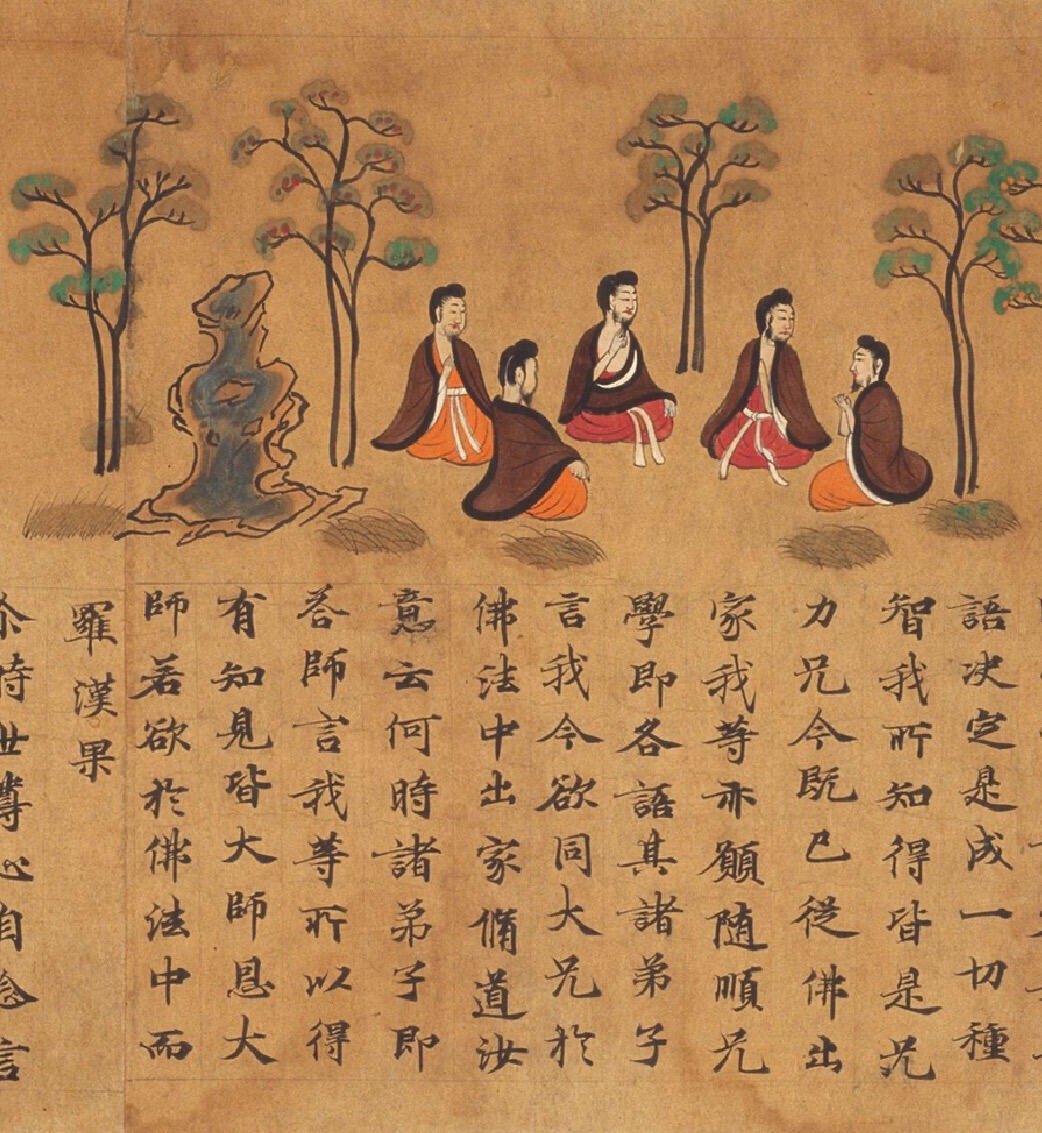 語决定是成一切種
智我所知得皆是兄
力兄今既已從佛出
家我等亦願随順兄
學即各語其諸弟子
言我今欲同大兄於
佛法中出家脩道汝
意云何時諸弟子即
荅師言我等所以得
有知見皆大師恩大
師若欲於佛法中而
羅漢果
尒時世尊心自念言